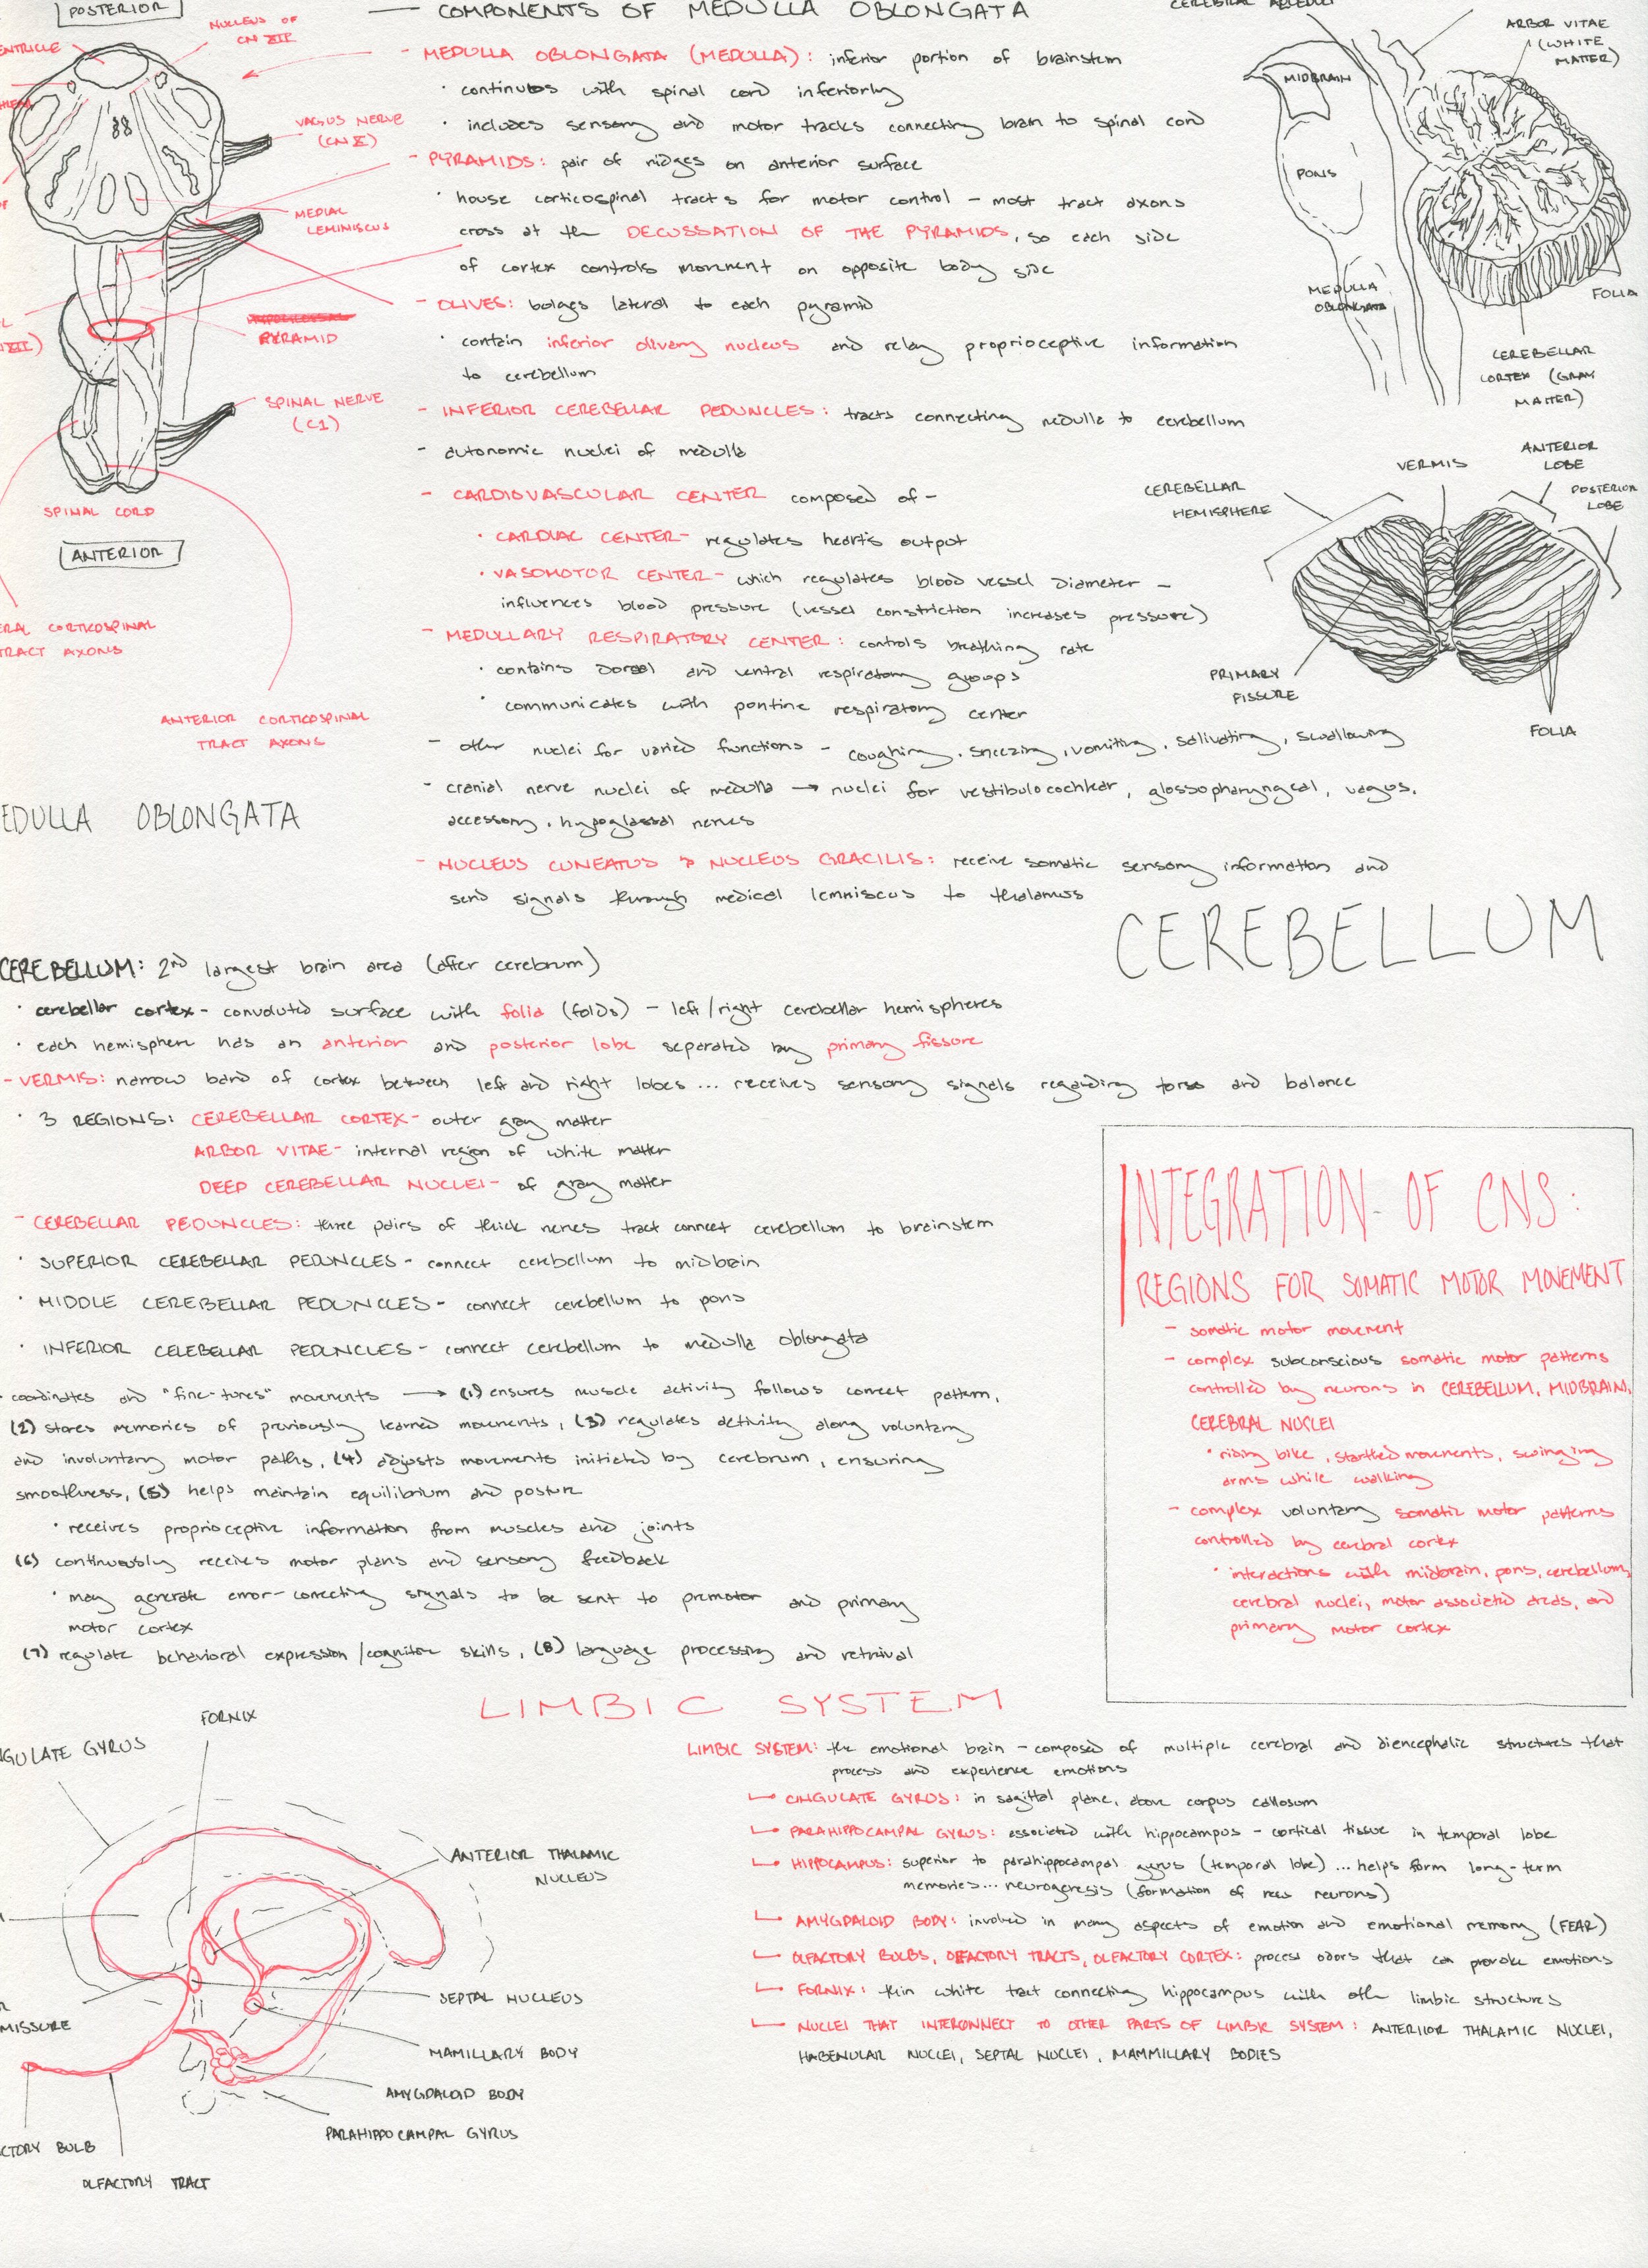 POSTERIOR
COMPONENTS OF MEDULLA OBLONGATA
NUCLEUS OF
CN XII
ENTRICLE
VAGUS NERVE
(CN X)
MEDIAL
LEMINISCUS
PYRAMID
SPINAL NERVE
(C1)
SPINAL CORD
ANTERIOR
ERAL CORTICOSPINAL
TRACT AXONS
ANTERIOR CORTICOSPINAL
TRACT AXONS
EDULLA OBLONGATA
- MEDULLA OBLONGATA (MEDULLA): inferior portion of brainstem
· continuos with spinal cord inferiorly
· includes sensory and motor tracks connecting brain to spinal cord
- PYRAMIDS: pair of ridges on anterior surface
· house corticospinal tracts for motor control - most tract axons
cross at the DECUSSATION OF THE PYRAMIDS, so each side
of cortex controls movment on opposite body side
- OLIVES: bulges lateral to each pyramid
· contain inferior olivary nucleus and relay proprioceptive information
to cerebellum
- INFERIOR CEREBELLAR PEDUNCLES: tracts connecting medulla to cerebellum
- autonomic nuclei of medulla
- CARDIOVASCULAR CENTER composed of -
· CARDIAC CENTER - regulates heart's output
· VASOMOTOR CENTER - which regulates blood vessel diameter -
influences blood pressure (vessel constriction increases pressure)
- MEDULLARY RESPIRATORY CENTER: controls breathing rate
· contains dorsal and ventral respiratory groups
· communicates with pontine respiratory center
- other nuclei for varied functions - coughing, sneezing, vomiting, salivating, swallowing
- cranial nerve nuclei of medulla → nuclei for vestibulocochlear, glossopharyngeal, vagus,
accessory, hypoglassal nerves
- NUCLEUS CUNEATUS & NUCLEUS GRACILIS: receive somatic sensory information and
send signals through medical lemniscus to thalamus
ARBOR VITAE
(WHITE
MATTER)
MIDBRAIN
PONS
MEDULLA
OBLONGATA
FOLIA
CEREBELLAR
CORTEX (GRAY
MATTER)
VERMIS
ANTERIOR
LOBE
POSTERIOR
LOBE
CEREBELLAR
HEMISPHERE
PRIMARY
FISSURE
FOLIA
CEREBELLUM
CEREBELLUM: 2nd largest brain area (after cerebrum)
· cerebellar cortex - convoluted surface with folia (folds) - left/right cerebellar hemispheres
· each hemisphere has an anterior and posterior lobe separated by primary fissure
- VERMIS: narrow band of cortex between left and right lobes ... receives sensory signals regarding torso and balance
· 3 REGIONS: CEREBELLAR CORTEX - outer gray matter
ARBOR VITAE - internal region of white matter
DEEP CEREBELLAR NUCLEI - of gray matter
- CEREBELLAR PEDUNCLES: three pairs of thick nerves tract connect cerebellum to brainstem
· SUPERIOR CEREBELLAR PEDUNCLES - connect cerebellum to midbrain
· MIDDLE CEREBELLAR PEDUNCLES - connect cerebellum to pons
· INFERIOR CELEBELLAR PEDUNCLES - connect cerebellum to medulla oblongata
· coordinates and "fine-tunes" movements → (1) ensures muscle activity follows correct pattern,
(2) stores memories of previously learned movments, (3) regulates activity along voluntary
and involuntary motor paths, (4) adjusts movements initiated by cerebrum, ensuring
smoothness, (5) helps maintain equilibrium and posture
· receives proprioceptive information from muscles and joints
(6) continuously receives motor plans and sensory feedback
· may generate error-correcting signals to be sent to premotor and primary
motor cortex
(7) regulate behavioral expression/cognitive skills, (8) language processing and retrival
INTEGRATION OF CNS:
REGIONS FOR SOMATIC MOTOR MOVEMENT
- somatic motor movement
- complex subconscious somatic motor patterns
controlled by neurons in CEREBELLUM, MIDBRAIN,
CEREBRAL NUCLEI
· riding bike, startled movments, swinging
arms while walking
- complex voluntary somatic motor patterns
controlled by cerebral cortex
· interactions with midbrain, pons, cerebellum,
cerebral nuclei, motor associated areas, and
primary motor cortex
LIMBIC SYSTEM
FORNIX
NGULATE GYRUS
ANTERIOR THALAMIC
NUCLEUS
SEPTAL NUCLEUS
MISSURE
MAMILLARY BODY
AMYGDALOID BODY
PARAHIPPOCAMPAL GYRUS
CTORY BULB
OLFACTORY TRACT
LIMBIC SYSTEM: the emotional brain - composed of multiple cerebral and diencephalic structures that
process and experience emotions
CINGULATE GYRUS: in sagittal plane, above corpus callosum
PARAHIPPOCAMPAL GYRUS: associated with hippocampus - cortical tissue in temporal lobe
HIPPOCAMPUS: superior to parahippocampal gyrus (temporal lobe) ... helps form long-term
memories ... neurogenesis (formation of new neurons)
AMYGDALOID BODY: involved in many aspects of emotion and emotional memory (FEAR)
OLFACTORY BULBS, OLFACTORY TRACTS, OLFACTORY CORTEX: process odors that can provoke emotions
FORNIX: thin white tract connecting hippocampus with oth limbic structures
NUCLEI THAT INTERCONNECT TO OTHER PARTS OF LIMBIC SYSTEM: ANTERIIOR THALAMIC NUCLEI,
HABENULAR NUCLEI, SEPTAL NUCLEI, MAMMILLARY BODIES